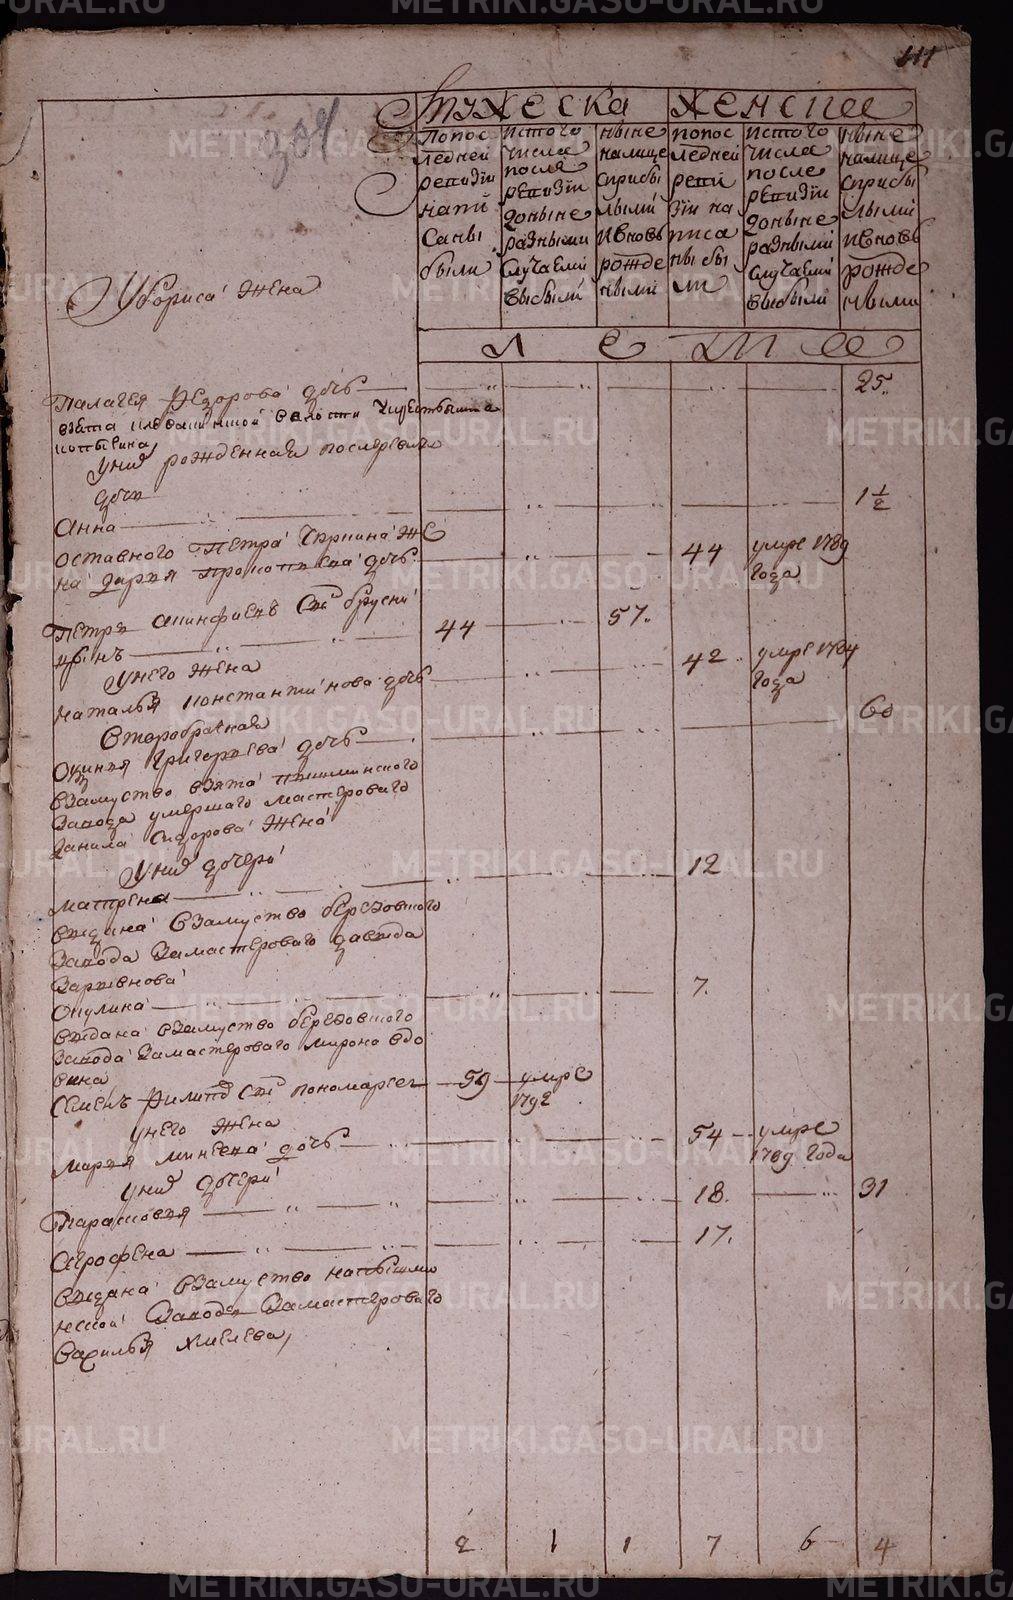 111
304
Мужеска Женска
попос ледней ревизии напи саны были
истого числа после ревизии доныне разными случаеми выбыли
ныне налице сприбы лыми ивновь рожде нными
попос ледней реви зии на писа ны бы ли
истого числа после ревизии доныне разными случаеми выбыли
ныне налице сприбы лыми ивновь рожде нными
Убориса жена
Лета
Палагея Федорова дочь 25
взята волости
уних рожденная послеревизи
дочь
Анна 1 1/2
оставного Петра жε
на дарья прокопьева дочь 44 умре 1789 года
Петръ сынъ брусни
цынъ 44 57
унего жена
наталья константинова дочь 42 умре 1784 года
второбрачная
Григорьева дочь 60
взамуство взята пышминского
завода умершаго мастероваго
данила сидорова жена
уних дочери
матрена 12
выдана взамуство березовского
завода замастероваго давыда
Окулина 7
выдана взамуство березовского
завода замастероваго мирона вдо
вина
Семенъ Филипов сынъ пономарев 59 умре 1792
унего жена
марья минеева дочь 54 умре 1789 года
уних дочери
Парасковья 18 31
Агрофена 17
выдана взамуство напышми
нской завода замастероваго
василья хмелева
2 1 1 7 6 4
METRIKI.GASO-URAL.RU